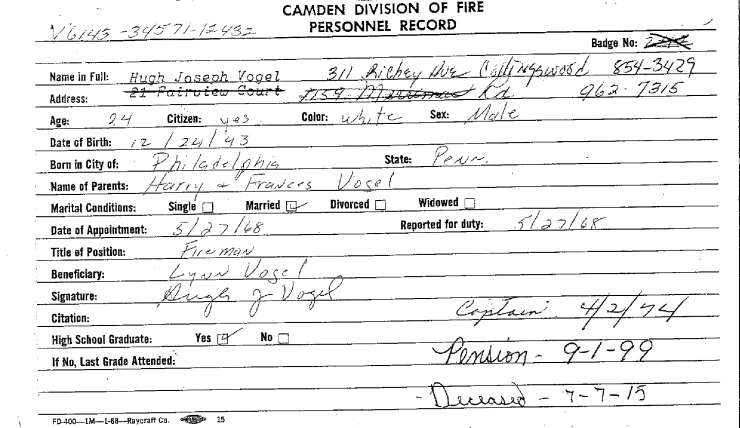 CAMDEN DIVISION OF FIRE
PERSONNEL RECORD
V6145-34571-12432
Badge No:
Name in Full: Hugh Joseph Vogel 311 Richey Ave Collingswood 854-3429
Address: 21 Fairview Court 1159 Merrimac Rd 962-7315
Age: 24 Citizen: yes Color: White Sex: Male
Date of Birth: 12/24/43
Born in City of: Philadelphia State: Penn.
Name of Parents: Harry & Frances Vogel
Marital Conditions: Single ☐ Married ☑ Divorced ☐ Widowed ☐
Date of Appointment: 5/27/68 Reported for duty: 5/27/68
Title of Position: Fireman
Beneficiary: Lynn Vogel
Signature: Hugh J Vogel
Citation: Captain 4/2/74
High School Graduate: Yes ☑ No ☐
If No, Last Grade Attended: Pension - 9-1-99
- Deceased - 7-7-15
FD-400—1M—1-68—Raycraft Co. 15